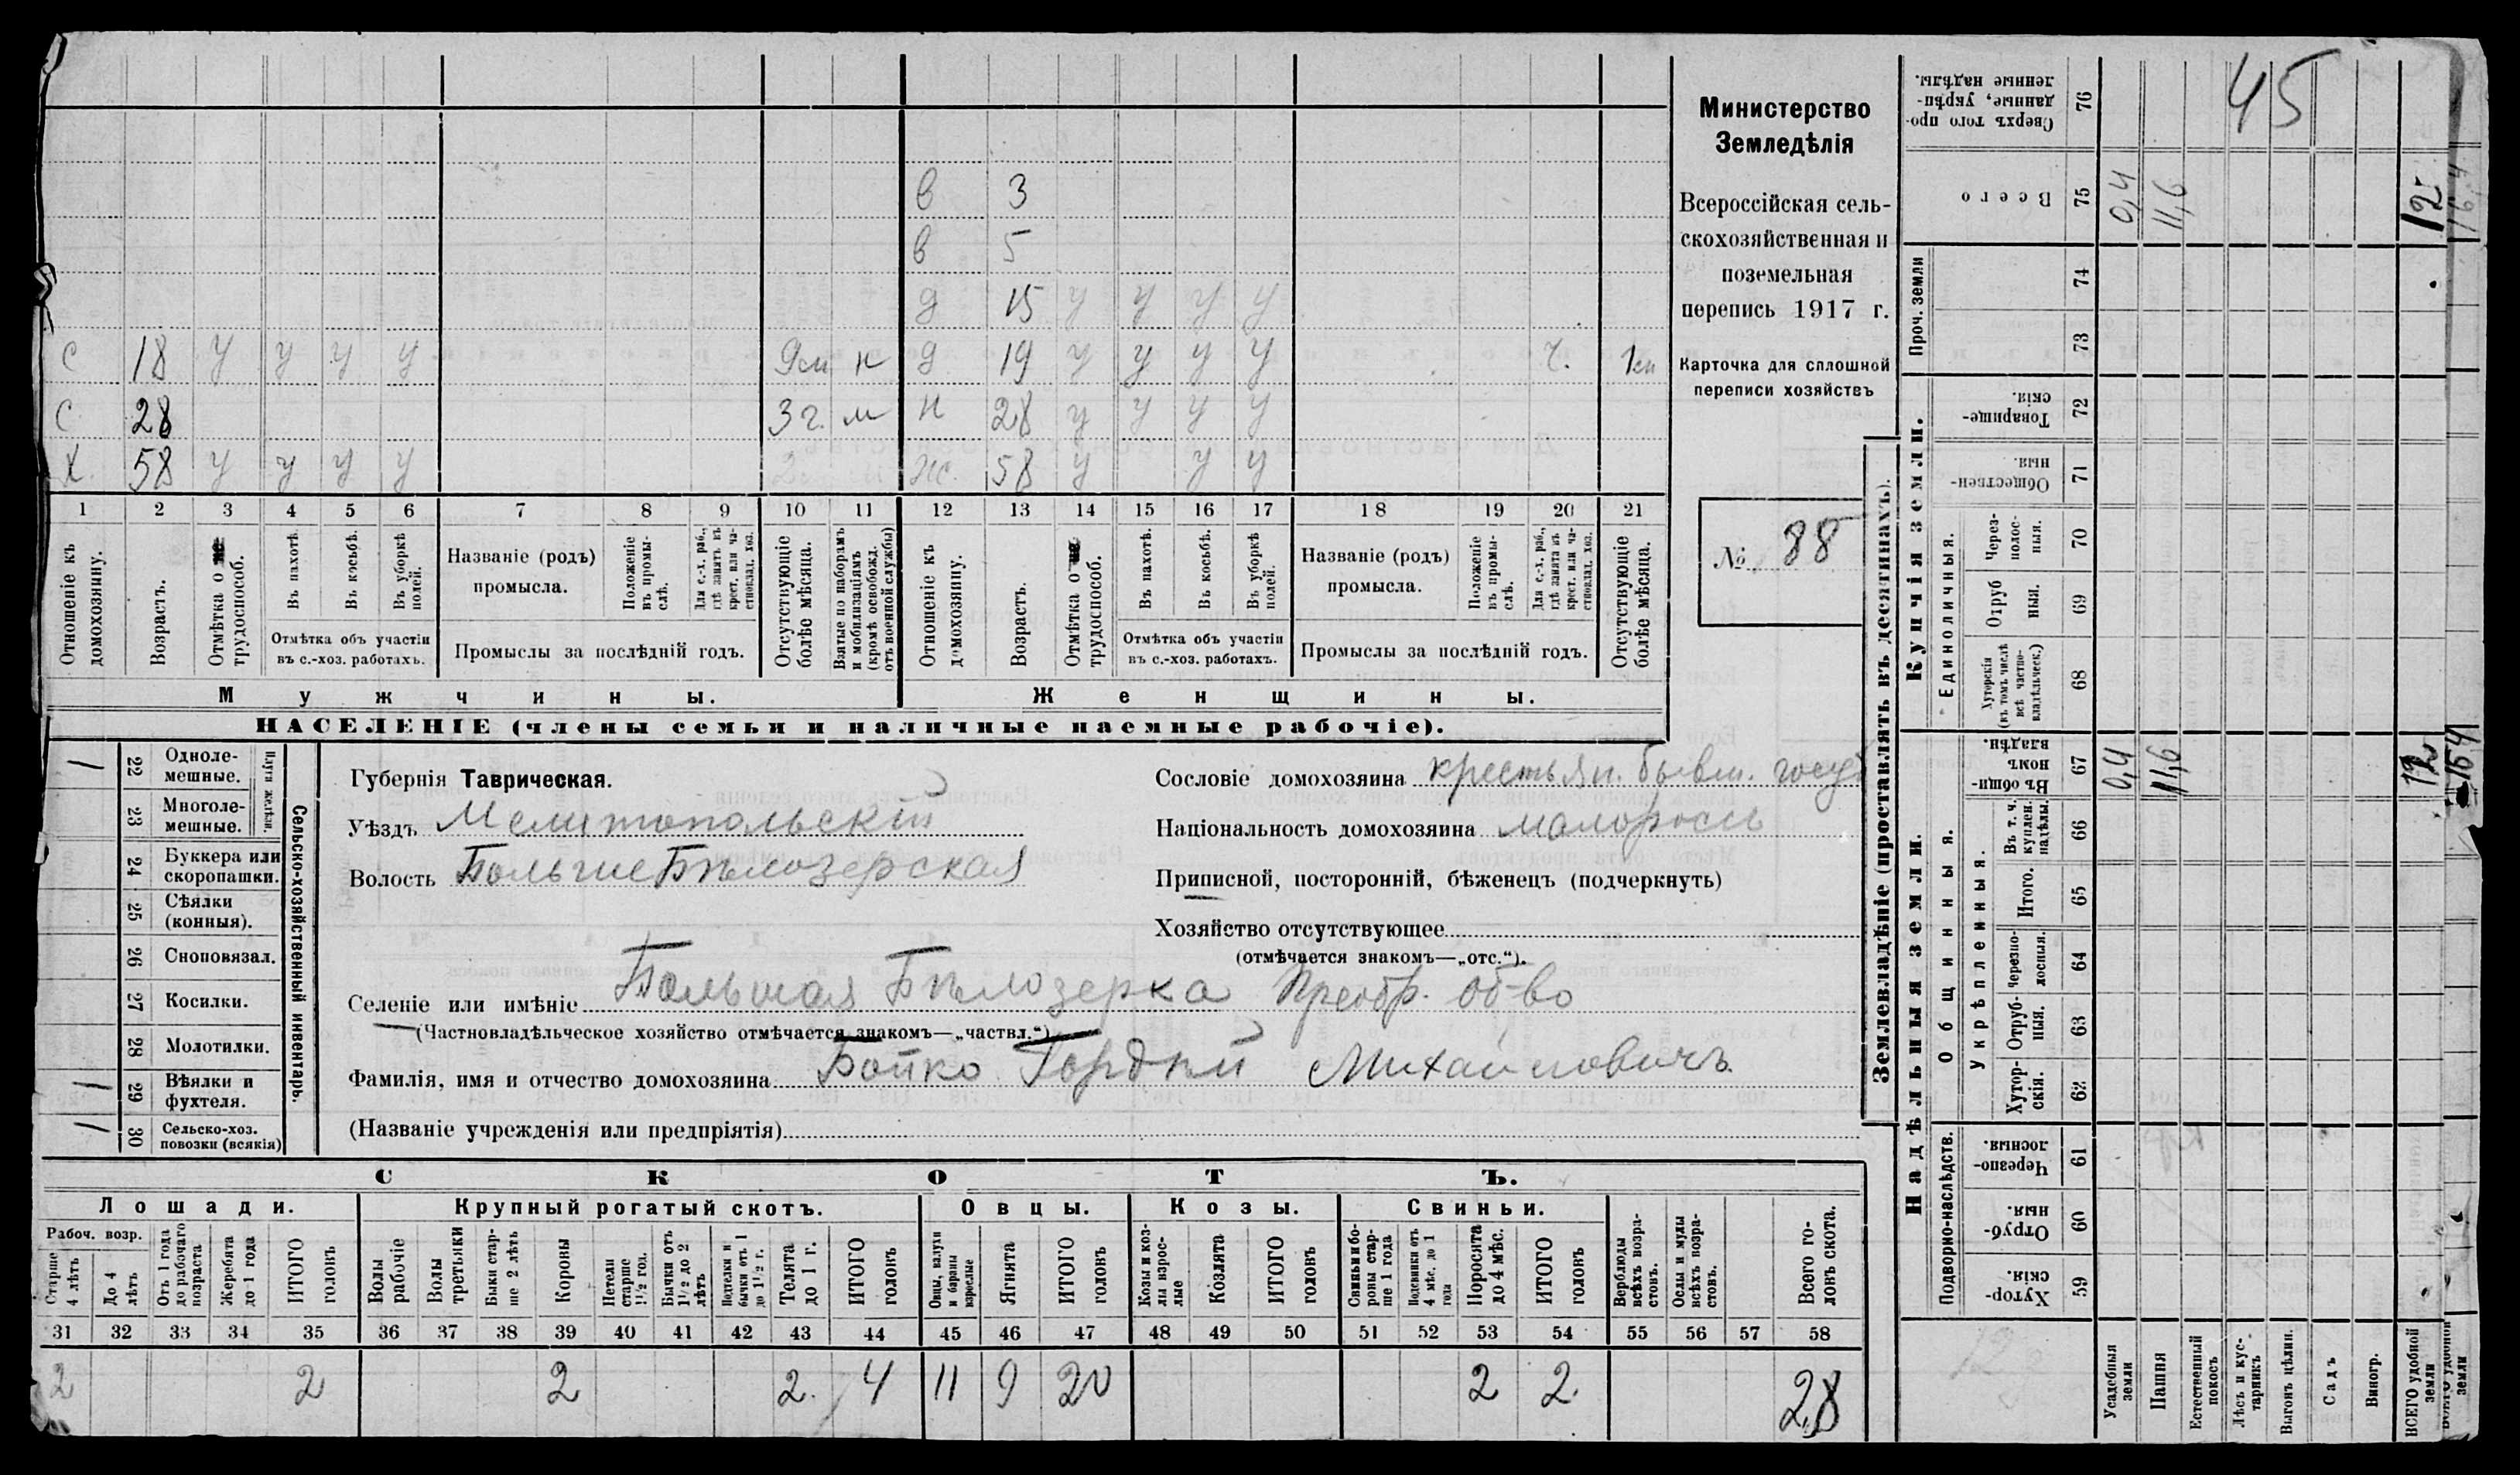 в 3
в 5
д 15 у у у у
с 18 у у у у 9 м н д 19 у у у у ч. 1 м
с 28 3 г. м н 28 у у у у
х. 58 у у у у ж. 58 у у у
1 2 3 4 5 6 7 8 9 10 11 12 13 14 15 16 17 18 19 20 21
Отношеніе къ домохозяину.
Возрастъ.
Отмѣтка о трудоспособ.
Въ пахотѣ.
Въ косьбѣ.
Въ уборкѣ полей.
Отмѣтка объ участіи въ с.-хоз. работахъ.
Названіе (родъ) промысла.
Положеніе въ промыслѣ.
Для с.-х. раб., гдѣ занятъ въ крест. или частновлад. хоз.
Промыслы за послѣдній годъ.
Отсутствующіе болѣе мѣсяца.
Взятые по наборамъ и мобилизаціямъ (кромѣ освобожд. отъ военной службы)
Отношеніе къ домохозяину.
Возрастъ.
Отмѣтка о трудоспособ.
Въ пахотѣ.
Въ косьбѣ.
Въ уборкѣ полей.
Отмѣтка объ участіи въ с.-хоз. работахъ.
Названіе (родъ) промысла.
Положеніе въ промыслѣ.
Для с.-х. раб., гдѣ занятъ въ крест. или частновлад. хоз.
Промыслы за послѣдній годъ.
Отсутствующіе болѣе мѣсяца.
Мужчины. Женщины.
НАСЕЛЕНІЕ (члены семьи и наличные наемные рабочіе).
Министерство
Земледѣлія
Всероссійская сель-
скохозяйственная и
поземельная
перепись 1917 г.
Карточка для сплошной
переписи хозяйствъ
№ 88
Сельско-хозяйственный инвентарь.
Плуги желѣзн.
/ 22 Одноле-
мешные.
23 Многоле-
мешные.
24 Буккера или
скоропашки.
25 Сѣялки
(конныя).
26 Сноповязал.
27 Косилки.
28 Молотилки.
/ 29 Вѣялки и
фухтеля.
/ 30 Сельско-хоз.
повозки (всякія)
Губернія Таврическая.
Уѣздъ Мелитопольскій
Волость Больше Бѣлозерская
Сословіе домохозяина крестьян. бывш. госуд
Національность домохозяина малороссъ
Приписной, посторонній, бѣженецъ (подчеркнуть)
Хозяйство отсутствующее
(отмѣчается знакомъ—„отс.“).
Селеніе или имѣніе Большая Бѣлозерка Преобр. об-во
(Частновладѣльческое хозяйство отмѣчается знакомъ—„частвл.“)
Фамилія, имя и отчество домохозяина Бойко Гордѣй Михайловичъ
(Названіе учрежденія или предпріятія)
СКОТЪ.
Лошади. Крупный рогатый скотъ. Овцы. Козы. Свиньи.
Рабоч. возр.
Старше 4 лѣтъ
До 4 лѣтъ
Отъ 1 года до рабочаго возраста
Жеребята до 1 года
ИТОГО головъ
Волы рабочіе
Волы третьяки
Быки старше 2 лѣтъ
Коровы
Нетели старше 1 1/2 год.
Бычки отъ 1 1/2 до 2 лѣтъ
Подтелки и бычки отъ 1 до 1 1/2 г.
Телята до 1 г.
ИТОГО головъ
Овцы, валухи и бараны взрослые
Ягнята
ИТОГО головъ
Козы и козлы взрослые
Козлята
ИТОГО головъ
Свиньи и боровы старше 1 года
Подсвинки отъ 4 мѣс. до 1 года
Поросята до 4 мѣс.
ИТОГО головъ
Верблюды всѣхъ возрастовъ.
Ослы и мулы всѣхъ возрастовъ.
Всего головъ скота.
31 32 33 34 35 36 37 38 39 40 41 42 43 44 45 46 47 48 49 50 51 52 53 54 55 56 57 58
2 2 2 2. 4 11 9 20 2 2. 28
Землевладѣніе (проставлять въ десятинахъ).
Купчія земли.
Надѣльныя земли.
45
76 Сверхъ того проданные, укрѣпленные надѣлы.
75 Всего 0,4 11,6 12 16,4
Проч. земли
74
73
72 Товарищескія.
71 Общественныя.
Единоличныя.
70 Черезполосныя.
69 Отрубныя.
68 Хуторскія (въ томъ числѣ всѣ частновладѣльческ.)
Общинныя.
67 Въ общин. владѣн. 0,4 11,6 12
Укрѣпленныя.
66 Въ т. ч. куплен. надѣлы.
65 Итого.
64 Черезполосныя.
63 Отрубныя.
62 Хуторскія.
Подворно-наслѣдств.
61 Черезполосныя.
60 Отрубныя.
59 Хуторскія.
12
Усадебныя земли
Пашня
Естественный покосъ
Лѣсъ и кустарникъ
Выгонъ цѣлин.
Садъ
Виногр.
ВСЕГО удобной земли